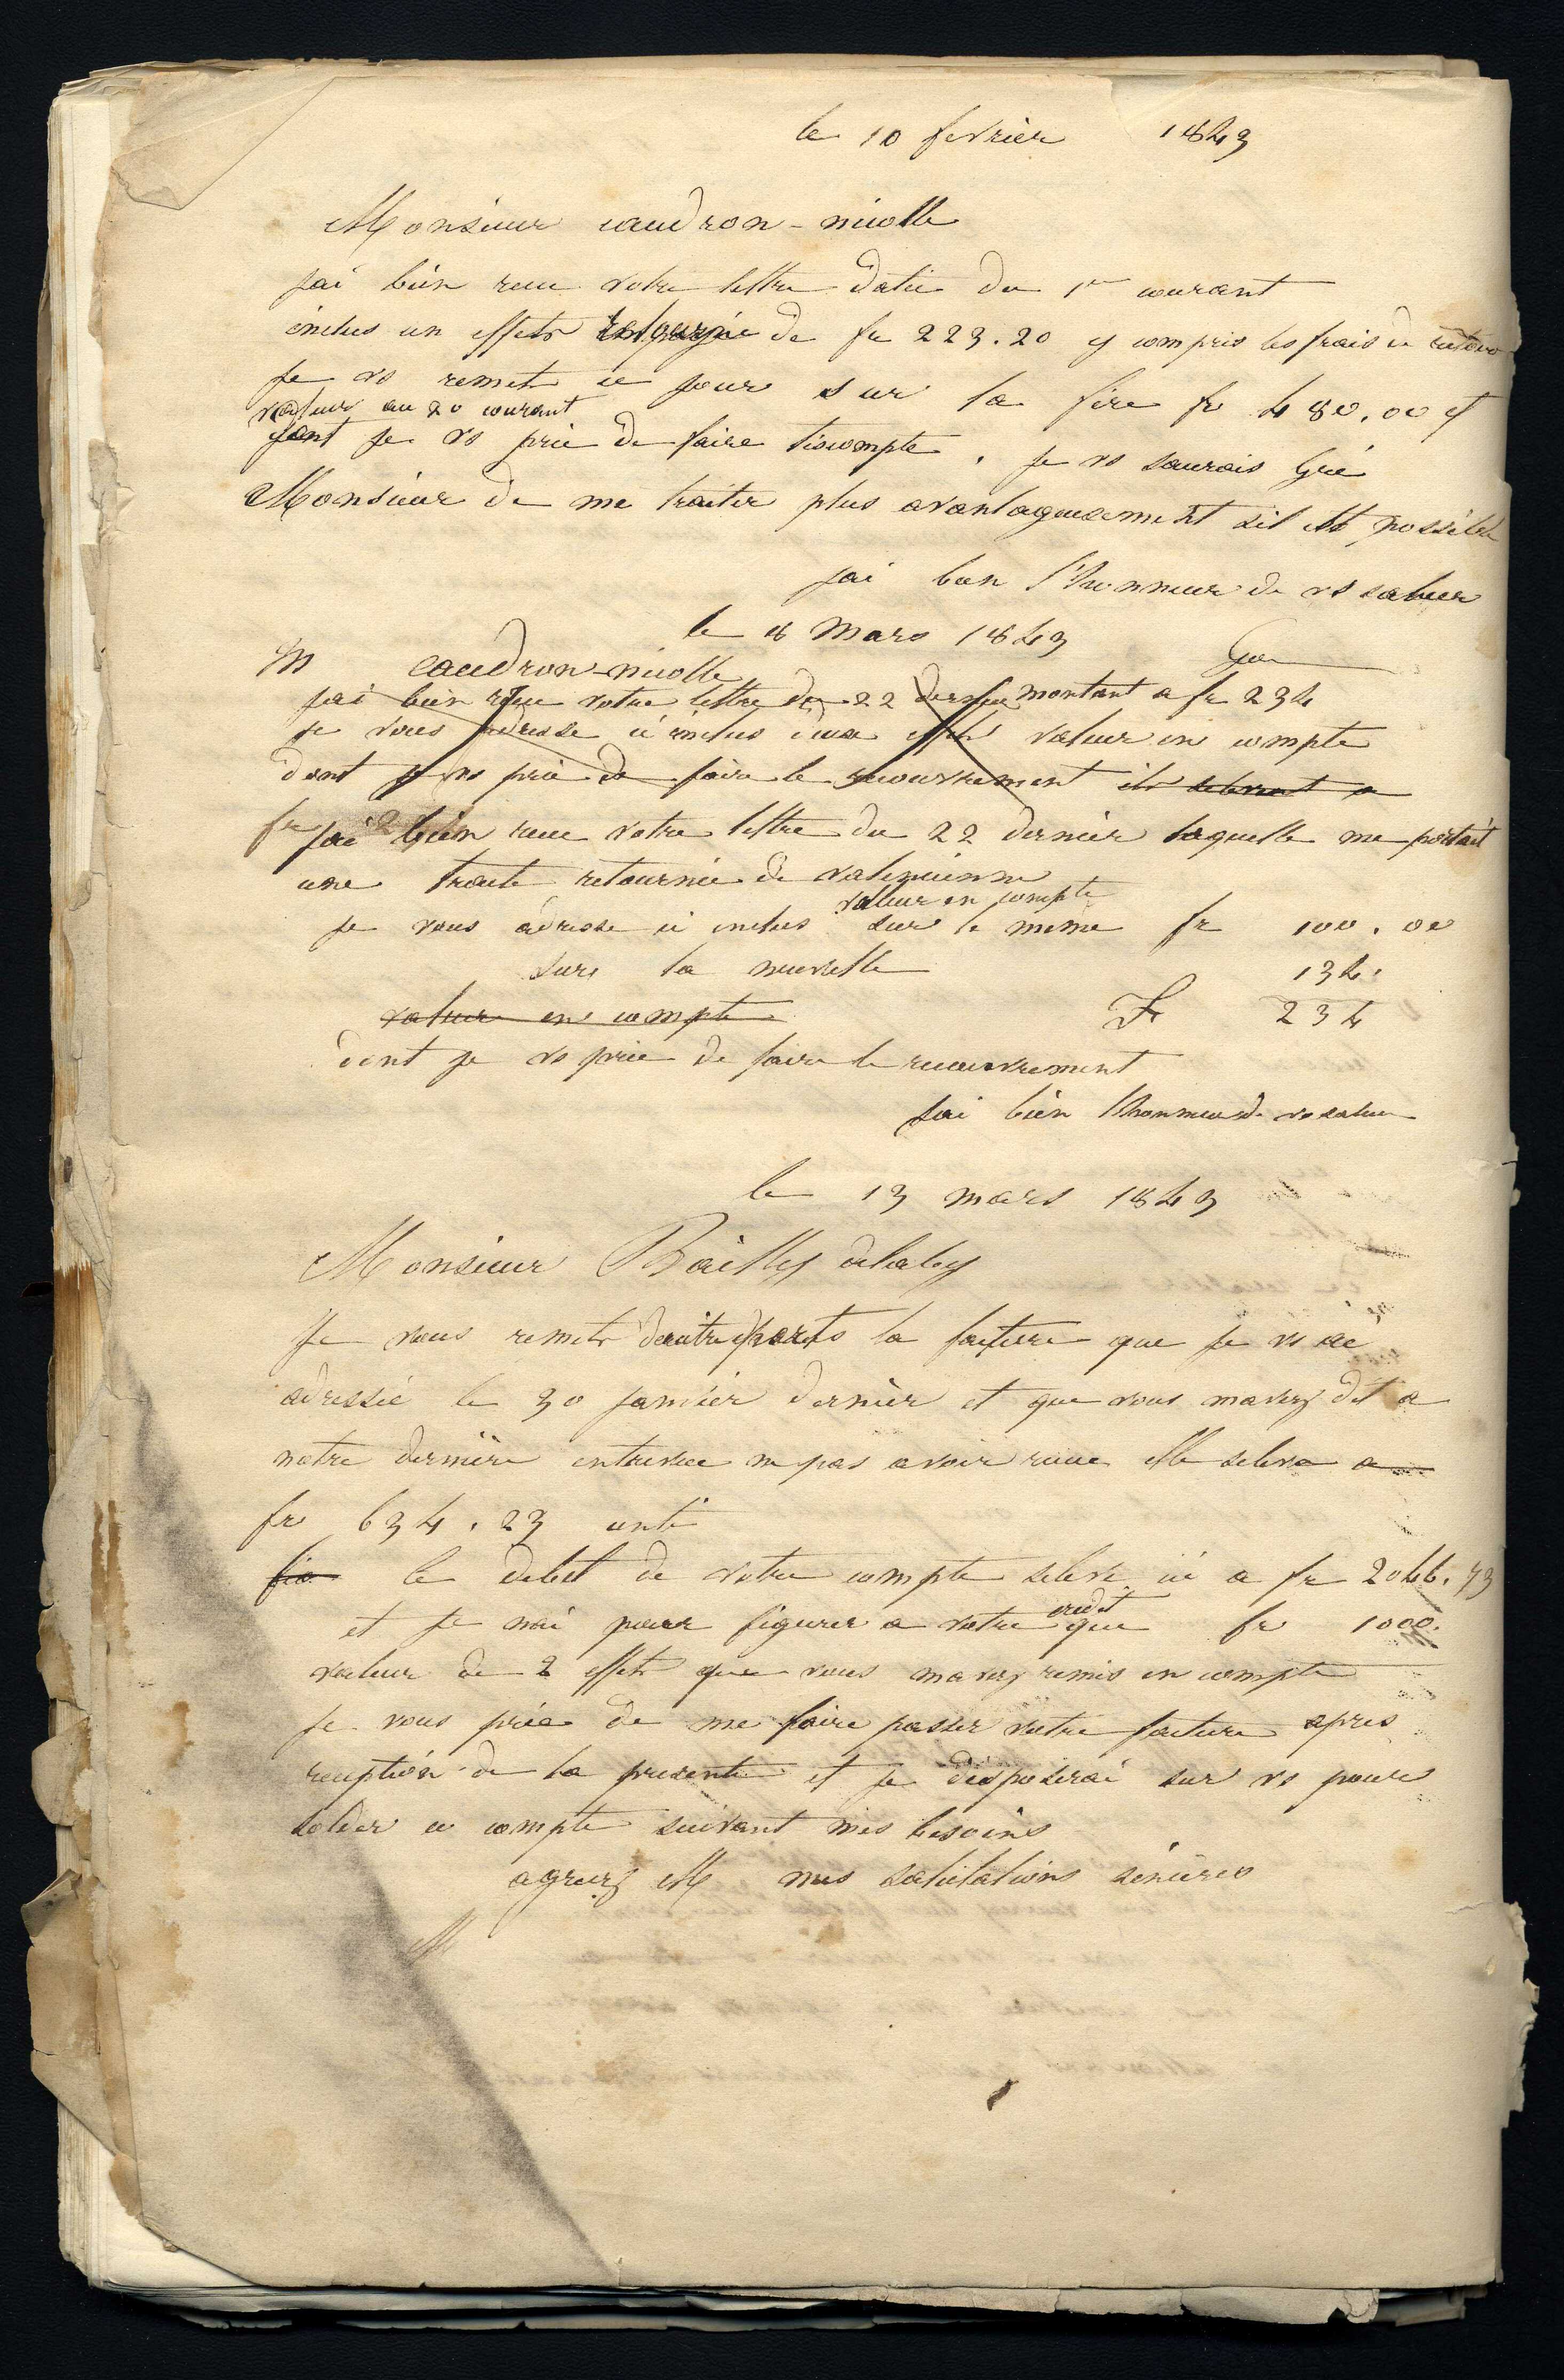 le 10 fevrier 1843
Monsieur caudron-nicolle
jai bien recu votre lettre datée du 1er courant
inclus un effets retournée de fr 223.20 y compris les frais de retour
je vs remets ce jour sur la fère fr 480.00
valeur au 20 courant
dont je vs prie de faire l'escompte. je vs saurais Gré
Monsieur de me traiter plus avantageusement sil est possible
jai bien l'honneur de vs saluer
le 8 Mars 1843
M caudron-nicolle
jai bien reçu votre lettre du 22 dernier montant a fr 234
je vous adresse ci inclus deux effets valeur en compte
dont je vs prie de faire le recouvrement ils selevent a
fr jai bien recu votre lettre du 22 dernier laquelle me portait
une traite retournée de valencienne
valeur en compte
je vous adresse ci inclus sur le meme fr 100.00
sur la neuville 134.
valeur en compte Fr 234
dont je vs prie de faire le recouvrement
jai bien lhonneur de vs saluer
le 13 mars 1843
Monsieur Bailly
Je vous remets dautreparts la facture que je vs ai
adressée le 30 janvier dernier et que vous mavez dit a
notre dernière entrevue ne pas avoir recue elle seleve a
fr 634.23 cnts
le debet de votre compte seleve ici a fr 2046.73
et je nai pour figurer a votre credit que fr 1000.
valeur de 2 effets que vous mavez remis en compte
je vous prie de me faire passer votre facture apres
reception de la presente et je disposerai sur vs pour
solder ce compte suivant mes besoins
agreez M mes salutations sinceres
M